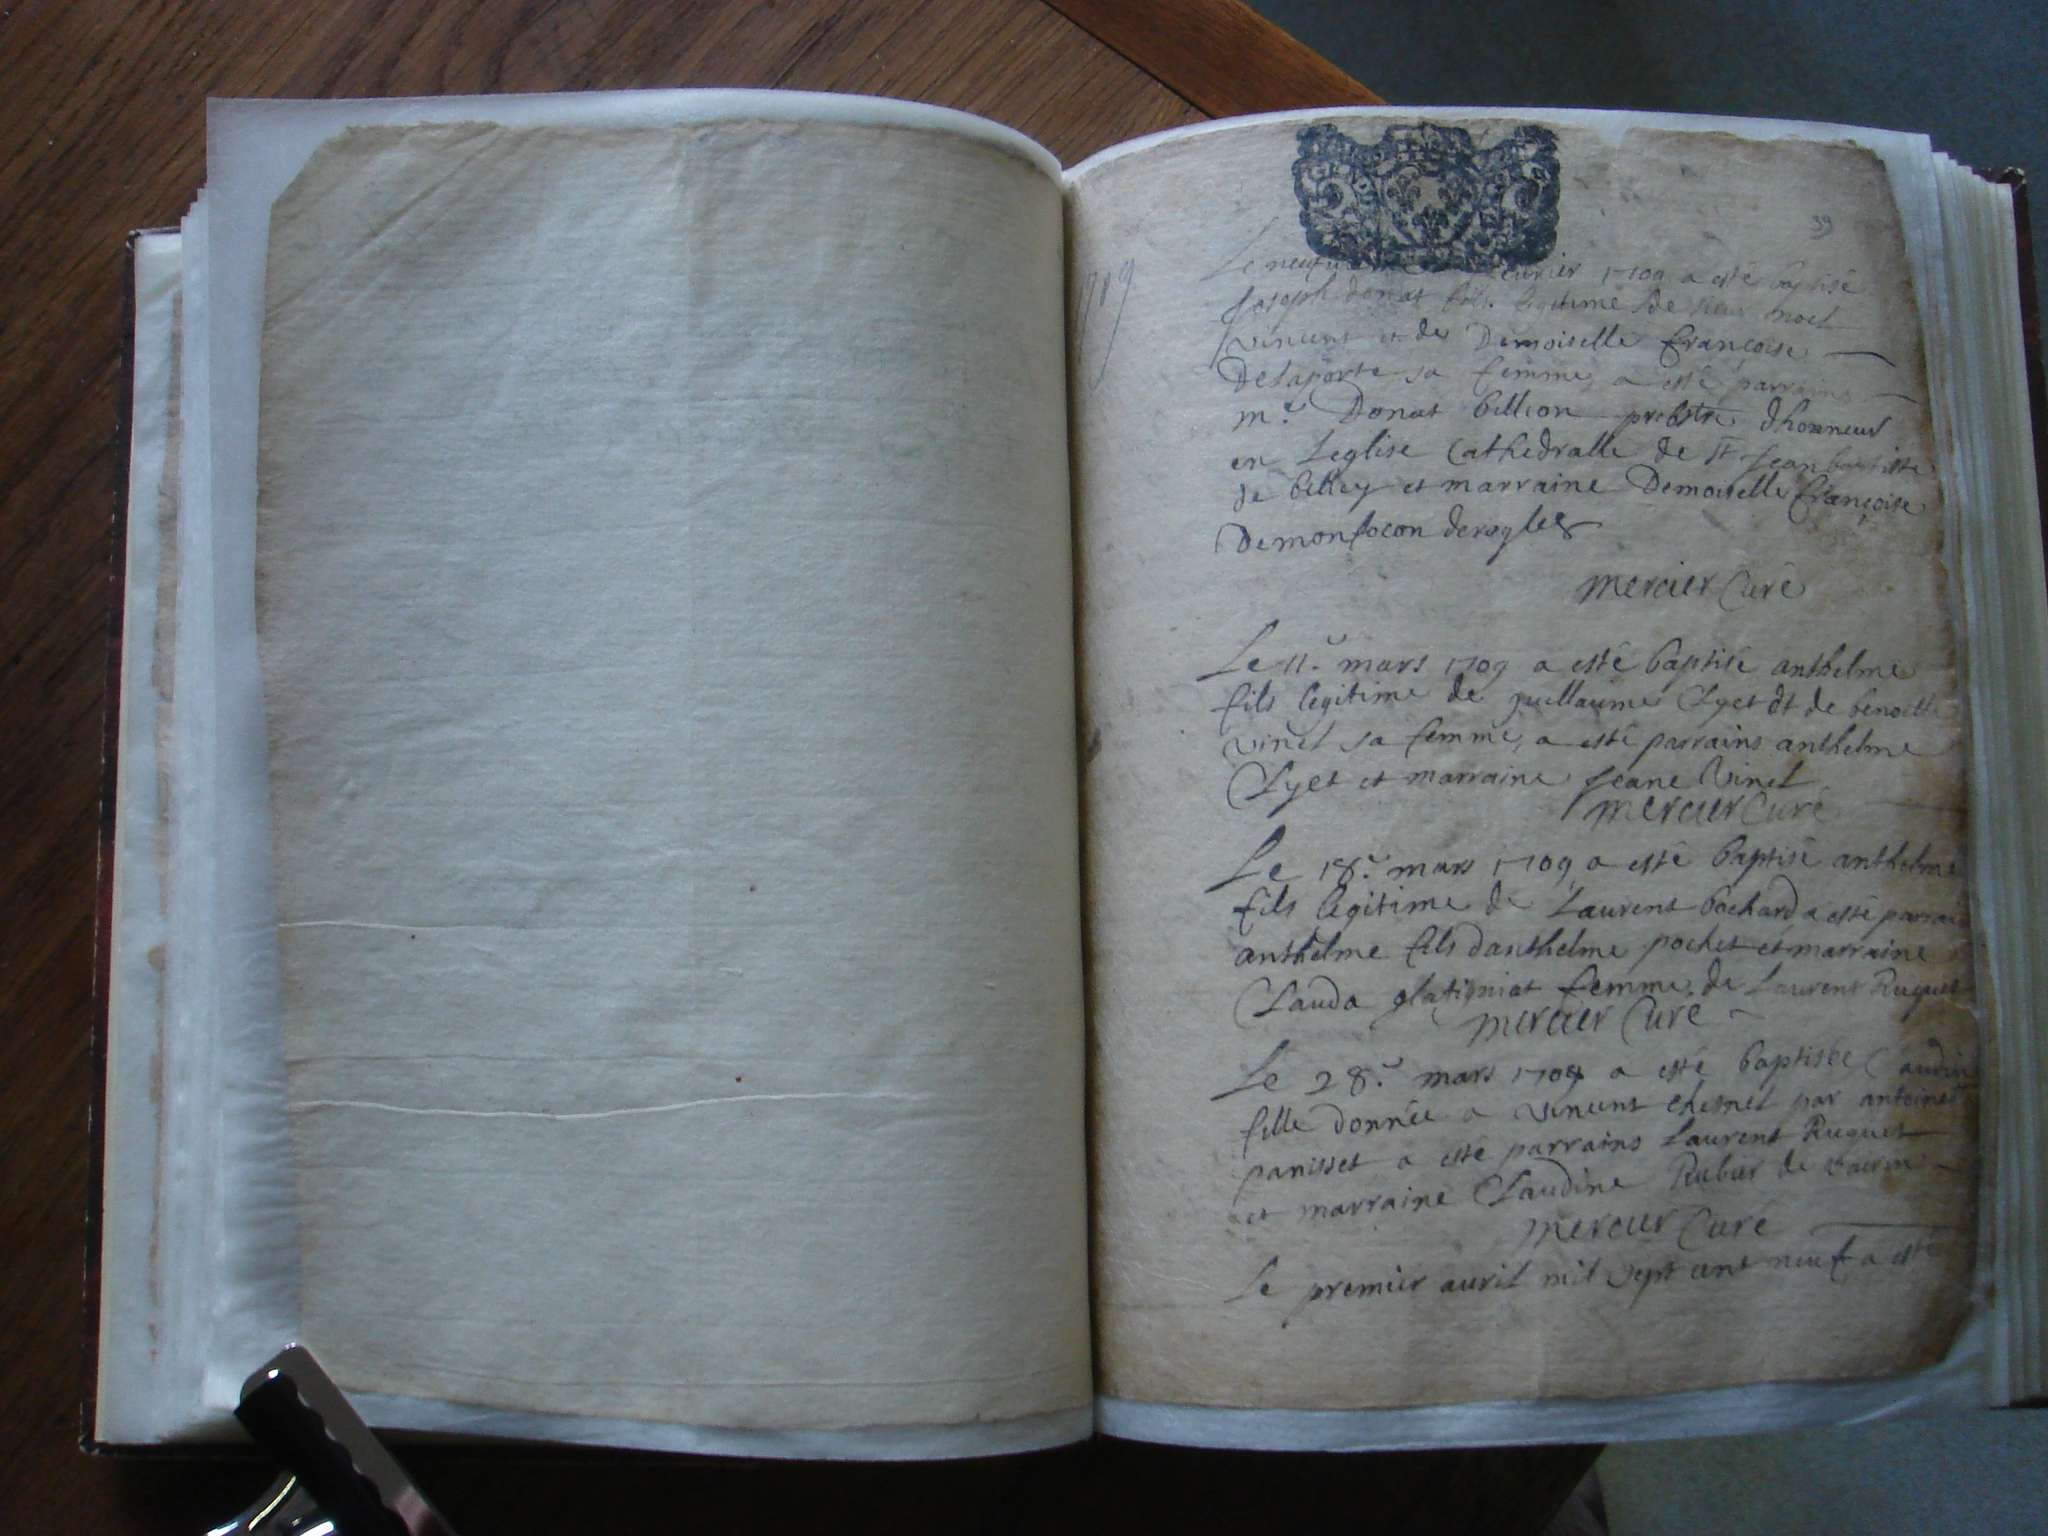 39
1709
Le neufvie feurier 1709 a esté baptisé
Joseph donat fils legitime de noel
vincent et de Demoiselle francoise
Delaporte sa femme, a esté parrains
mr. Donat billion prebstre dhonneur
en Leglise Cathedralle de st Jean baptiste
de belley et marraine Demoiselle françoise
Demonfocon
mercier Curé
Le 11e. mars 1709 a esté baptisé anthelme
fils legitime de guillaume Lyet et de benoitte
vinet sa femme, a esté parrains anthelme
Lyet et marraine Jeane Vinet
mercier Curé
Le 18e. mars 1709 a esté baptisé anthelme
fils legitime de Laurent bochard a esté parrai
anthelme fils danthelme pochet et marraine
Clauda glatigniat femme de Laurent Ruguet
mercier Curé
Le 28e. mars 1709 a esté baptisée Claudin
fille donnée a vincent chesnel par antoinet
panisset a esté parrains Laurent Ruguet
et marraine Claudine Rubier de
mercier Curé
Le premier auril mil sept cent neuf a esté